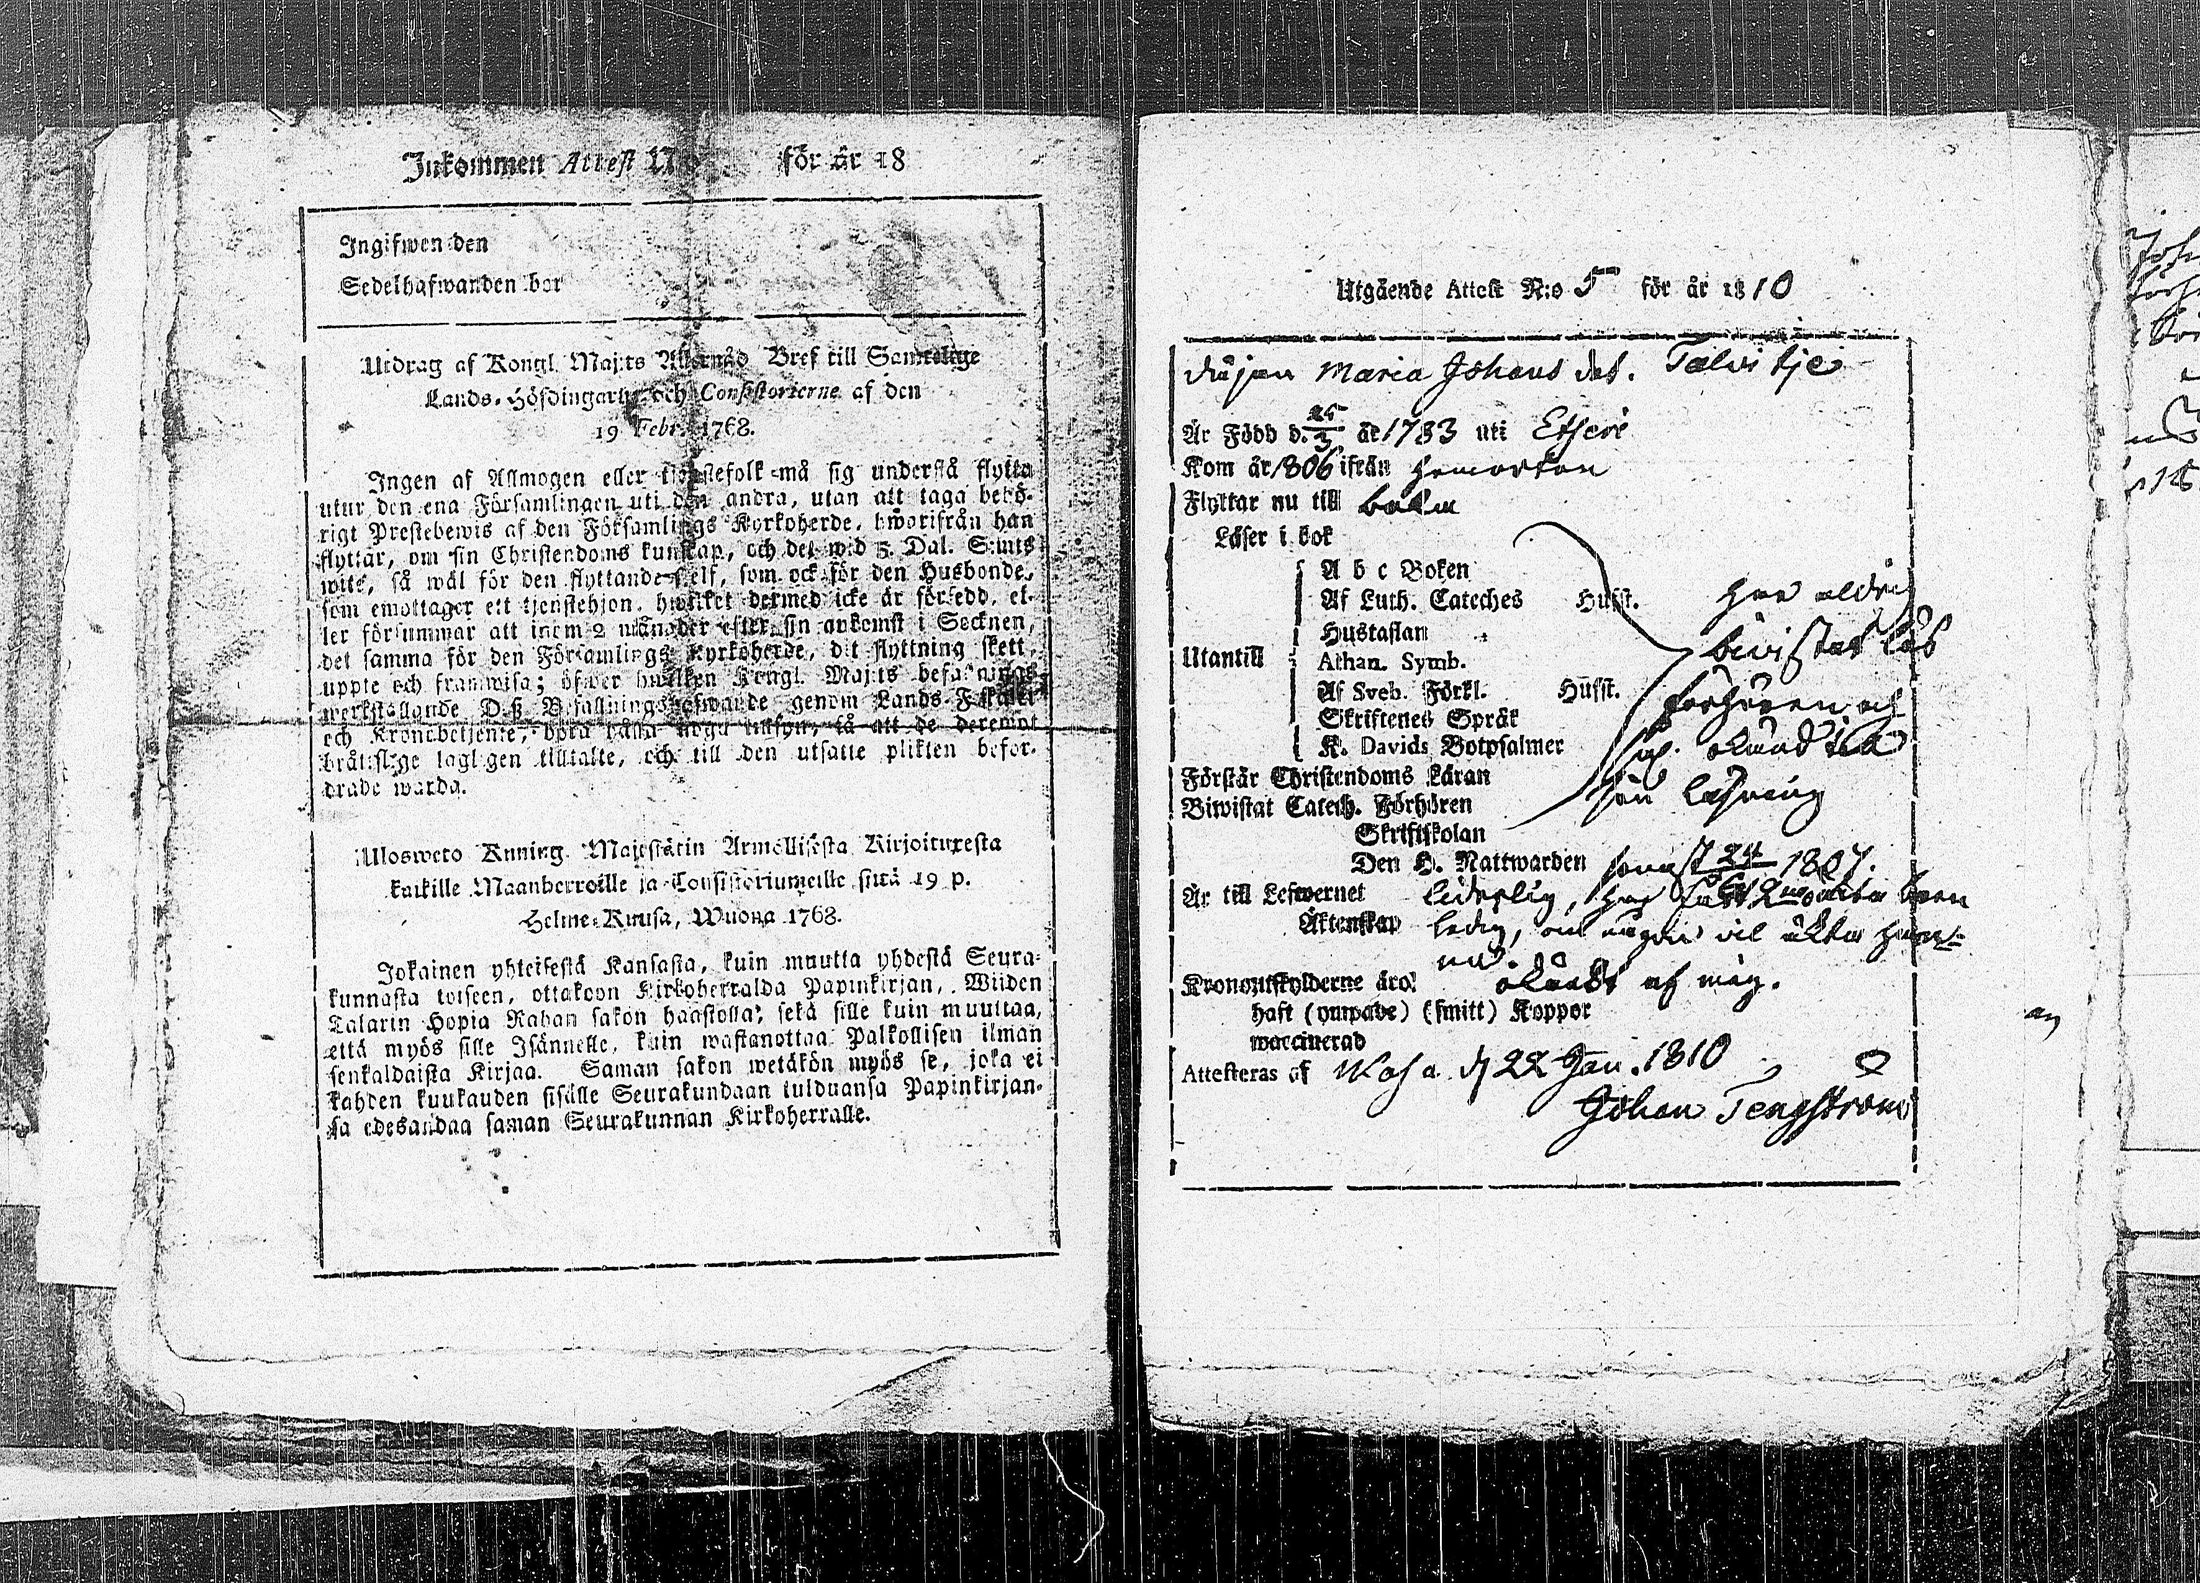 Inkommen Attest N:o för år 18
Ingifwen den
Sedelhafwanden bor
Utdrag af Kongl. Maj:ts Allernåd Bref till Samtelige
Lands-Höfdingarne och Consistorierne af den
19 Febr. 1768.
Ingen af Allmogen eller tjenstefolk må sig understå flytta
utur den ena Församlingen uti den andra, utan att taga behö-
rigt Prestebewis af den Församlings Kyrkoherde, hworifrån han
flyttar, om sin Christendoms kunskap, och det wid 5. Dal. S:mts
wite, så wäl för den flyttande self, som ock för den Husbonde,
som emottager ett tjenstehjon, hwilket dermed icke är försedd, el-
ler försummar att inom 2 månader efter sin ankomst i Socknen,
det samma för den Församlings Kyrkoherde, dit flyttning skett,
uppte och framwisa; öfwer hwilken Kongl. Maj:ts befallnings
werkställande D:ß Befallningshafwande genom Lands-Fiskaler
och Kronobetjente, böra hålla noga inseyn, så att de deremot
bråttslige lagligen tilltalte, och till den utsatte plikten befor-
drade warda.
Ulosweto Kuning. Majestätin Armollisesta Kirjoituxesta
kaikille Maanherroille ja Consistoriumeille siitä 19 p.
Helme-Kuusa, Wuona 1768.
Jokainen yhteisestä Kansasta, kuin muutta yhdestä Seura-
kunnasta toiseen, ottakoon Kirkoherralda Papinkirjan, Wiiden
Talarin Hopia Rahan sakon haastolla, sekä sille kuin muuttaa,
että myös sille Isännelle, kuin wastanottaa Palkollisen ilman
senkaldaista Kirjaa. Saman sakon wetäkön myös se, joka ei
kahden kuukauden sisälle Seurakundaan tulduansa Papinkirjan-
sa edesandaa saman Seurakunnan Kirkoherralle.
Utgående Attest N:o 5 för år 1810
Pigan Maria Johans dot. Talvitje
Är Född d. 25/3 år 1783 uti Etseri
Kom år 1806 ifrån hemorten
Flyttar nu till
Läser i bok
A b c Boken
Af Luth. Cateches Hufst.
Hustaflan
Utantill Athan. Symb.
Af Sveb. Förkl. Hufst.
Skriftenes Språk
K. Davids Botpsalmer
har aldrig
bivistat läs
förhören och
således okänd till
sin läsning
Förstår Christendoms Läran
Biwistat Catech. Förhören
Skriftskolan
Den H. Nattwarden senast 24 1807.
Är till Lefwernet liderlig, har haft 2ne oäkta barn
Äktenskap ledig, om någon vil äkta hen-
ne.
Kronoutskylderne äro okändt af mig.
haft (ympade) (smitt) Koppor
waccinerad
Attesteras af Wasa d 22 Jan. 1810
Johan Tengström